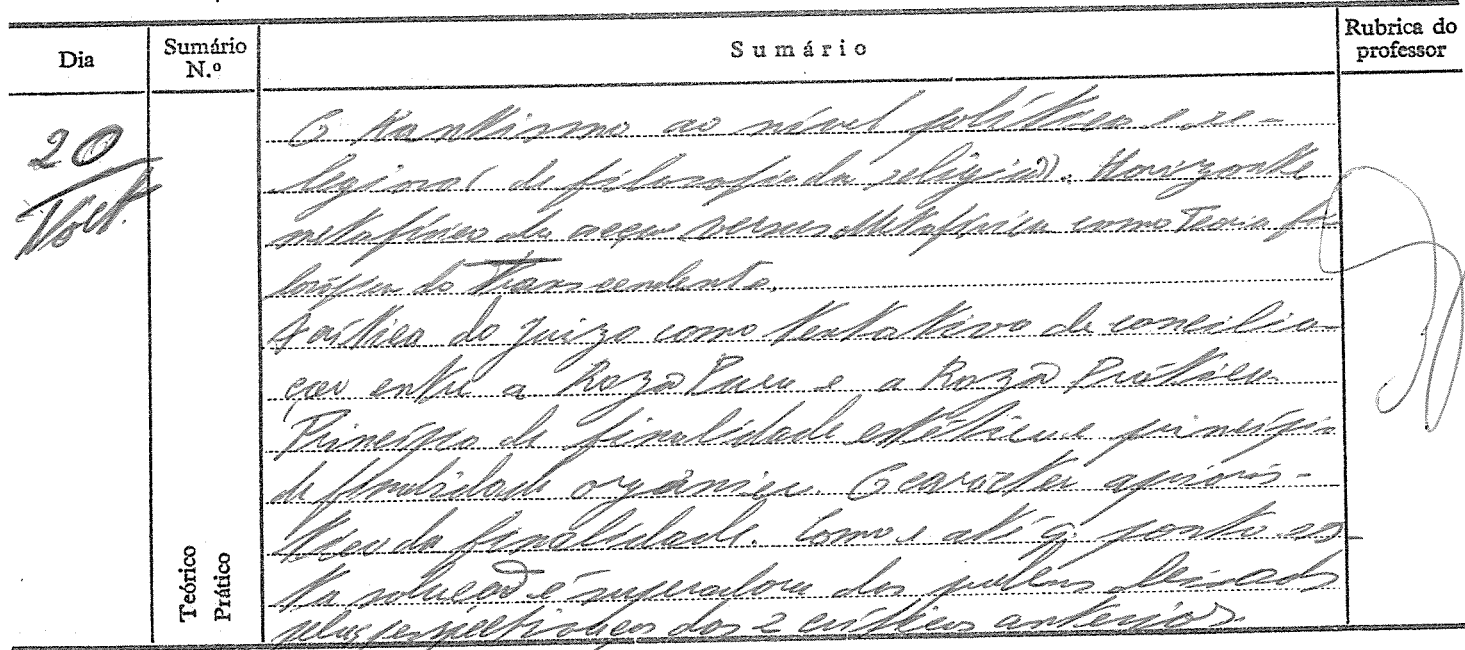 Dia
Sumário N.º
Sumário
Rubrica do professor
20
Teórico
Prático
O Kantismo ao nível político e re-
ligioso (de filosofia da religião). Horizonte
metafísico da versus Metafísica como Teoria fi-
losófica do Transcendente.
A crítica do Juízo como tentativa de concilia-
çao entre a Razão Pura e a Razão Prática
Princípio de finalidade estética e princípio
de finalidade orgânica. O carácter apriorís-
tico da finalidade. Como e até q. ponto es
ta solucão é superadora dos deixados
pelas dos 2 críticas anteriores.